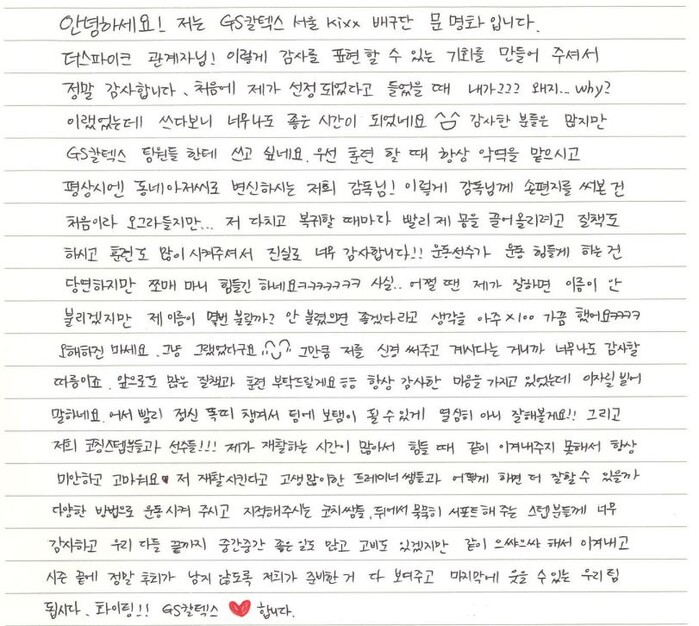 안녕하세요! 저는 GS칼텍스 서울 Kixx 배구단 문명화입니다.
더스파이크 관계자님! 이렇게 감사를 표현할 수 있는 기회를 만들어 주셔서
정말 감사합니다. 처음에 제가 선정되었다고 들었을 때 내가??? 왜지... why?
이랬었는데 쓰다보니 너무나도 좋은 시간이 되었네요 ^^ 감사한 분들은 많지만
GS칼텍스 당원들 한테 쓰고 싶네요. 우선 훈련 할 때 항상 악역을 맡으시고
평상시엔 동네아저씨로 변신하시는 저희 감독님! 이렇게 감독님께 손편지를 써본 건
처음이라 오그라들지만... 저 다치고 복귀할 때마다 빨리 제 몸을 끌어올리려고 질책도
하시고 훈련도 많이 시켜주셔서 진실로 너무 감사합니다!! 운동선수가 운동 힘들게 하는 건
당연하지만 쪼매 마니 힘들긴 하네요ㅋㅋㅋㅋㅋㅋ 사실.. 어쩔 땐 제가 잘하면 이름이 안
불리겠지만 제 이름이 몇번 불릴까? 안 불렸으면 좋겠다라고 생각을 아주 x100 가끔 했어요ㅋㅋㅋㅋ
오해하진 마세요. 그냥 그랬었다구요 ^^ 그만큼 저를 신경 써주고 계시다는 거니까 너무나도 감사할
따름이죠. 앞으로도 많은 질책과 훈련 부탁드릴게요ㅎㅎ 항상 감사한 마음을 가지고 있었는데 이자릴 빌어
말하네요. 어서 빨리 정신 똑띠 챙겨서 팀에 보탬이 될 수 있게 열심히 아니 잘해볼게요!! 그리고
저희 코칭스텝분들과 선수들!!! 제가 재활하는 시간이 많아서 힘들 때 같이 이겨내주지 못해서 항상
미안하고 고마워요♥ 저 재활시킨다고 고생많이한 트레이너쌤들과 어떻게 하면 더 잘할 수 있을까
다양한 방법으로 운동시켜 주시고 지적해주시는 코치쌤들, 뒤에서 묵묵히 서포트해 주는 스텝분들께 너무
감사하고 우리 다들 끝까지 중간중간 좋은일도 많고 고비도 있겠지만 같이 으쌰으쌰 해서 이겨내고
시즌 끝에 정말 후회가 남지 않도록 저희가 준비한 거 다 보여주고 마지막에 웃을 수 있는 우리 팀
됩시다. 화이팅!! GS칼텍스 ♥ 합니다.